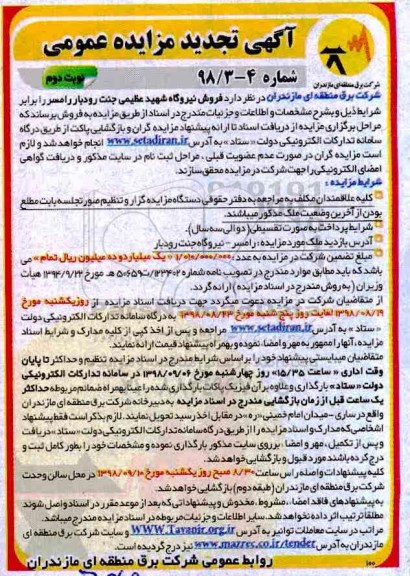 آگهی تجدید مزایده عمومی
شماره ۴-۹۸/۳
نوبت دوم
شرکت برق منطقه ای مازندران
شرکت برق منطقه ای مازندران در نظر دارد فروش نیروگاه شهید عظیمی جنت رودبار رامسر را برابر
شرایط ذیل و بشرح مشخصات و اطلاعات و جزئیات مندرج در اسناد از طریق مزایده به فروش برساند که
مراحل برگزاری مزایده از دریافت اسناد تا ارائه پیشنهاد مزایده گران و بازگشایی پاکت از طریق درگاه
سامانه تدارکات الکترونیکی دولت «ستاد» به آدرس www.setadiran.ir انجام خواهد شد و لازم
است مزایده گران در صورت عدم عضویت قبلی، مراحل ثبت نام در سایت مذکور و دریافت گواهی
امضای الکترونیکی را جهت شرکت در مزایده محقق سازند.
شرایط مزایده:
کلیه علاقمندان مکلف به مراجعه به دفتر حقوقی دستگاه مزایده گزار و تنظیم صورتجلسه بابت مطلع
بودن از آخرین وضعیت ملک مذکور میباشند.
شرایط پرداخت به صورت تقسیطی (دو الی سه سال).
آدرس بازدید ملک مورد مزایده: رامسر - نیروگاه جنت رودبار
مبلغ تضمین شرکت در مزایده به عدد، ۱/۰۱۰/۰۰۰/۰۰۰ « یک میلیارد و ده میلیون ریال تمام » می
باشد که باید مطابق موارد مندرج در تصویب نامه شماره ۱۲۳۴۰۲/ت۵۰۶۵۹ هـ مورخ ۱۳۹۴/۹/۲۲ هیأت
وزیران (به روش مندرج در اسناد مزایده) ارائه گردد.
از متقاضیان شرکت در مزایده دعوت میگردد جهت دریافت اسناد مزایده از روز یکشنبه مورخ
۱۳۹۸/۰۸/۱۹ لغایت روز پنج شنبه مورخ ۱۳۹۸/۰۸/۲۳ به درگاه سامانه تدارکات الکترونیکی دولت
« ستاد » به آدرس www.setadiran.ir مراجعه و پس از اخذ کپی از کلیه مدارک و شرایط اسناد
مزایده، آنها را ممهور به مهر و امضا، نموده و بهمراه پیشنهاد قیمت ارائه نمایند.
متقاضیان میبایستی پیشنهاد خود را بر اساس شرایط مندرج در اسناد مزایده تنظیم و حداکثر تا پایان
وقت اداری « ساعت ۱۵/۳۵» روز چهارشنبه مورخ ۱۳۹۸/۰۹/۰۶ در سامانه تدارکات الکترونیکی
دولت «ستاد» بارگذاری و علاوه بر آن فیزیک پاکات بارگذاری شده را عیناً بهمراه ضمائم مربوطه حداکثر
یک ساعت قبل از زمان بازگشایی مندرج در اسناد مزایده به دبیرخانه شرکت برق منطقه ای مازندران
واقع در ساری - میدان امام خمینی «ره» در مقابل اخذ رسید تحویل نمایند. لازم بذکر است فقط پیشنهاد
اشخاصی که مدارک و اسناد مزایده را از طریق درگاه سامانه تدارکات الکترونیکی دولت «ستاد» دریافت
و پس از تکمیل، مهر و امضا، بر روی سایت مذکور بارگذاری نموده و مشخصات خود را بطور کامل ثبت و
درج کرده باشند مورد قبول و بازگشایی خواهد شد.
کلیه پیشنهادات واصله راس ساعت ۸/۳۰ صبح روز یکشنبه مورخ ۱۳۹۸/۰۹/۱۰ در محل سالن وحدت
شرکت برق منطقه ای مازندران (طبقه دوم) بازگشایی خواهد شد.
به پیشنهادهای فاقد امضاء، مشروط، مخدوش و پیشنهاداتی که بعد از موعد مقرر در اسناد واصل شوند
مطلقا ترتیب اثر داده نخواهد شد. سایر اطلاعات و جزئیات مربوطه در اسناد مزایده مندرج میباشد.
مراتب در سایت معاملات توانیر به آدرس WWW.Tavanir.org.ir و سایت شرکت برق منطقه ای
مازندران به آدرس www.mazrec.co.ir/tender نیز درج گردیده است.
روابط عمومی شرکت برق منطقه ای مازندران